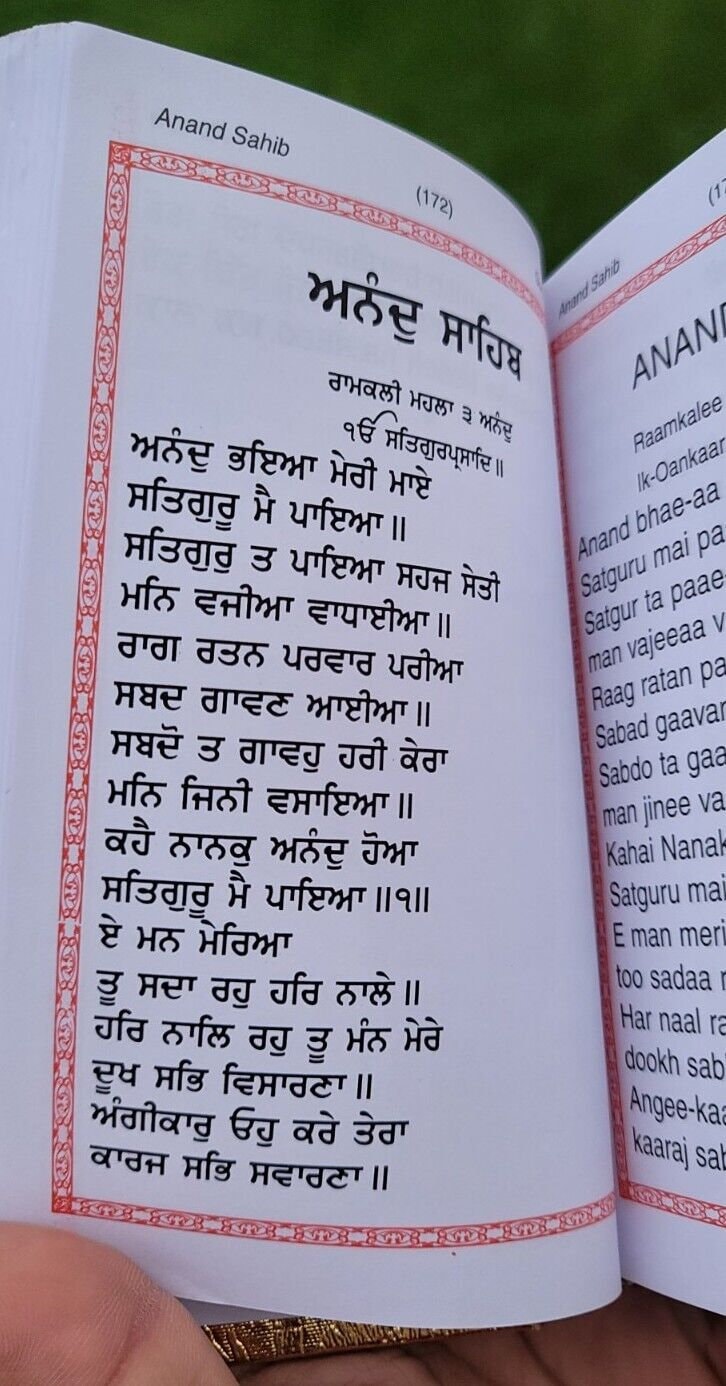 Anand Sahib
(172)
ਅਨੰਦੁ ਸਾਹਿਬ
ਰਾਮਕਲੀ ਮਹਲਾ ੩ ਅਨੰਦੁ
ੴ ਸਤਿਗੁਰਪ੍ਰਸਾਦਿ॥
ਅਨੰਦੁ ਭਇਆ ਮੇਰੀ ਮਾਏ
ਸਤਿਗੁਰੂ ਮੈ ਪਾਇਆ॥
ਸਤਿਗੁਰੁ ਤ ਪਾਇਆ ਸਹਜ ਸੇਤੀ
ਮਨਿ ਵਜੀਆ ਵਾਧਾਈਆ॥
ਰਾਗ ਰਤਨ ਪਰਵਾਰ ਪਰੀਆ
ਸਬਦ ਗਾਵਣ ਆਈਆ॥
ਸਬਦੋ ਤ ਗਾਵਹੁ ਹਰੀ ਕੇਰਾ
ਮਨਿ ਜਿਨੀ ਵਸਾਇਆ॥
ਕਹੈ ਨਾਨਕੁ ਅਨੰਦੁ ਹੋਆ
ਸਤਿਗੁਰੂ ਮੈ ਪਾਇਆ॥੧॥
ਏ ਮਨ ਮੇਰਿਆ
ਤੂ ਸਦਾ ਰਹੁ ਹਰਿ ਨਾਲੇ॥
ਹਰਿ ਨਾਲਿ ਰਹੁ ਤੂ ਮੰਨ ਮੇਰੇ
ਦੂਖ ਸਭਿ ਵਿਸਾਰਣਾ॥
ਅੰਗੀਕਾਰੁ ਓਹੁ ਕਰੇ ਤੇਰਾ
ਕਾਰਜ ਸਭਿ ਸਵਾਰਣਾ॥
Anand Sahib
Raamkalee
Ik-Oankaar
Anand bhae-aa
Satguru mai
Satgur ta
man vajeeaa
Raag ratan
Sabad
Sabdo ta
man jinee
Kahai Nanak
Satguru mai
E man
too sadaa
Har naal
dookh
kaaraj